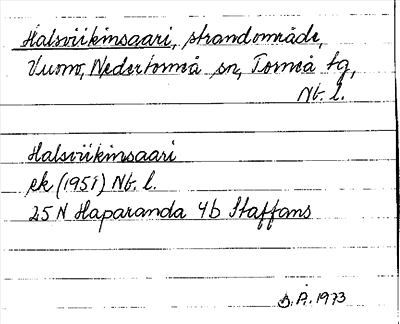 Halsviikinsaari, strandområde,
Vuono, Nedertorneå sn, Torneå tg,
Nb. l.
Halsviikinsaari
ek (1951) Nb. l.
25 N Haparanda 4b Staffans
S. P. 1973